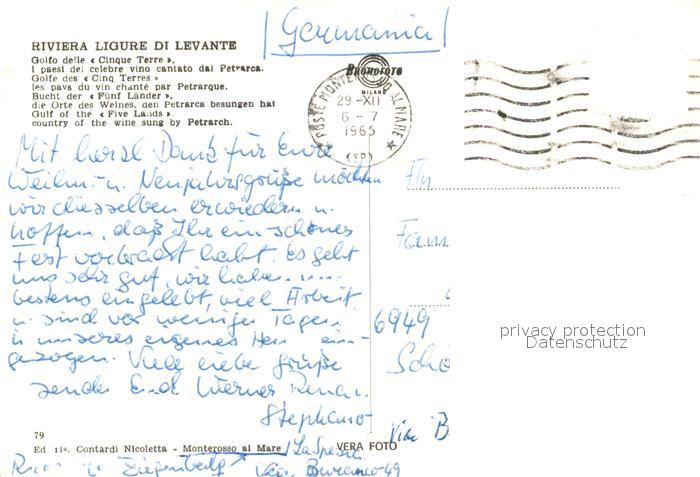 Germania
RIVIERA LIGURE DI LEVANTE
Golfo delle « Cinque Terre ».
I paesi del celebre vino cantato dal Petrarca.
Golfe des « Cinq Terres »
les pays du vin chanté par Petrarque.
Bucht der « Fünf Länder ».
die Orte des Weines, den Petrarca besungen hat
Gulf of the « Five Lands ».
country of the wine sung by Petrarch.
BROMOFOTO
MILANO
POSTE MONTEROSSO AL MARE
29-XII
6-7
1965
(SP)
Mit herzl Dank für Eure
Weihn- u. Neujahrsgrüße möchten
wir dieselben erwiedern u.
hoffen, daß Ihr ein schönes
Fest verbracht habt. Es geht
uns sehr gut, wir haben uns
bestens eingelebt, viel Arbeit
u. sind vor wenigen Tagen
in unseres eigenes Heim ein-
gezogen. Viele liebe Grüße
senden Euch Werner Renate
Stephano
An
Fam
6949
Schö
privacy protection
Datenschutz
79
Ed 11c. Contardi Nicoletta - Monterosso al Mare / La Spezia
VERA FOTO
Via B
Ziegenberg Via Buranco 49